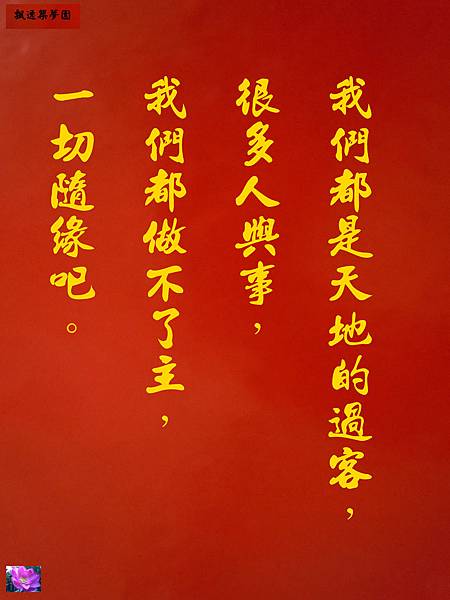 飄逸築夢園
我們都是天地的過客，
很多人與事，
我們都做不了主，
一切隨緣吧。